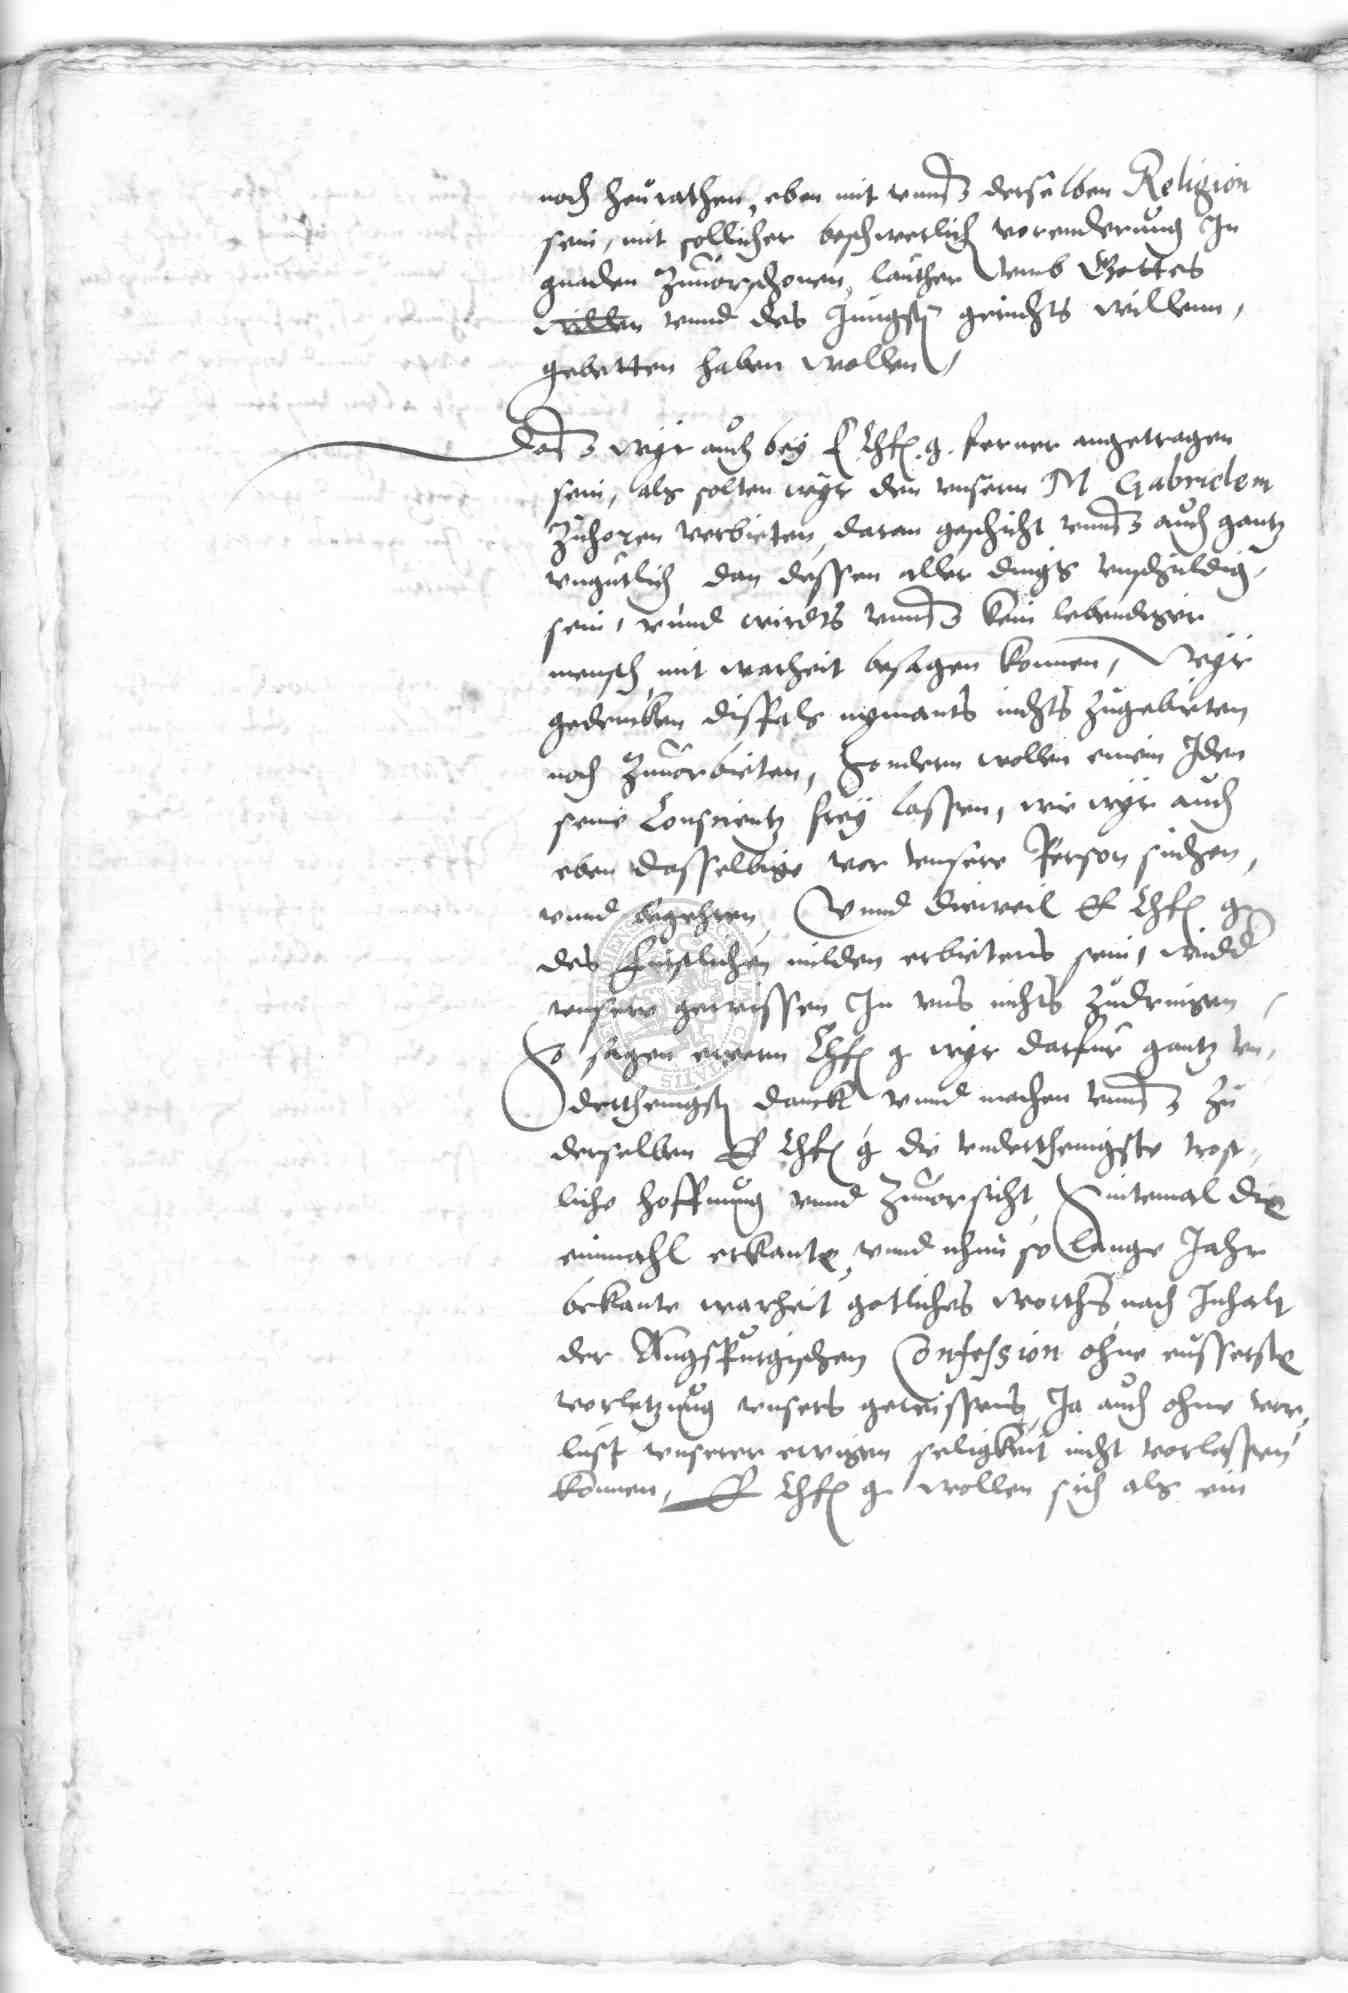 noch heurathen, eben mit vnns derselben Religion
sein, mit sollicher beschwerlich vorenderung In
gnaden Zuuorschonen, lauther vmb Gottes
willen vnnd des Jungst gerichts willenn,
gebetten haben wollen,
Das wyr auch bey E Chf. g. ferner angetragen
sein, als solten wyr den vnsern M Gabrielem
Zuhoren verbieten, daran geschicht vnns auch gantz
vngutlich dan dessen aller dings vnschuldig
sein, vnnd wirdts vnns kein lebendiger
mensch mit warheit besagen konnen, Wyr
gedencken dissfals nymants nichts zugebieten
noch Zuuorbieten, Sondern wollen einem Iden
seine Conscientz frey lassen, wie wyr auch
eben dasselbige vor vnsere Person suchen,
vnnd begehren, Vnnd dieweil E Chf g
des furstlichen milden erbietens sein, widd
vnsere gewissen In vns nichts zudringen,
So sagen ewern Chf g wyr darfur gantz vn,
derthenigst danck vnnd machen vnns zu
derselben E Chf g die vnderthenigste trost,
liche hoffnung vnnd Zuuorsicht, Sintemal die
einmahl erkante, vnnd nhun so lange Jahr
bekante warheit gotliches worths, nach Inhalt
der Augspurgischen Confession ohne eusserste
vorletzung vnsers gewissens, Ja auch ohne vor,
lust vnserer ewigen seligkeit nicht vorlassen
konnen, E Chf g wollen sich als ein